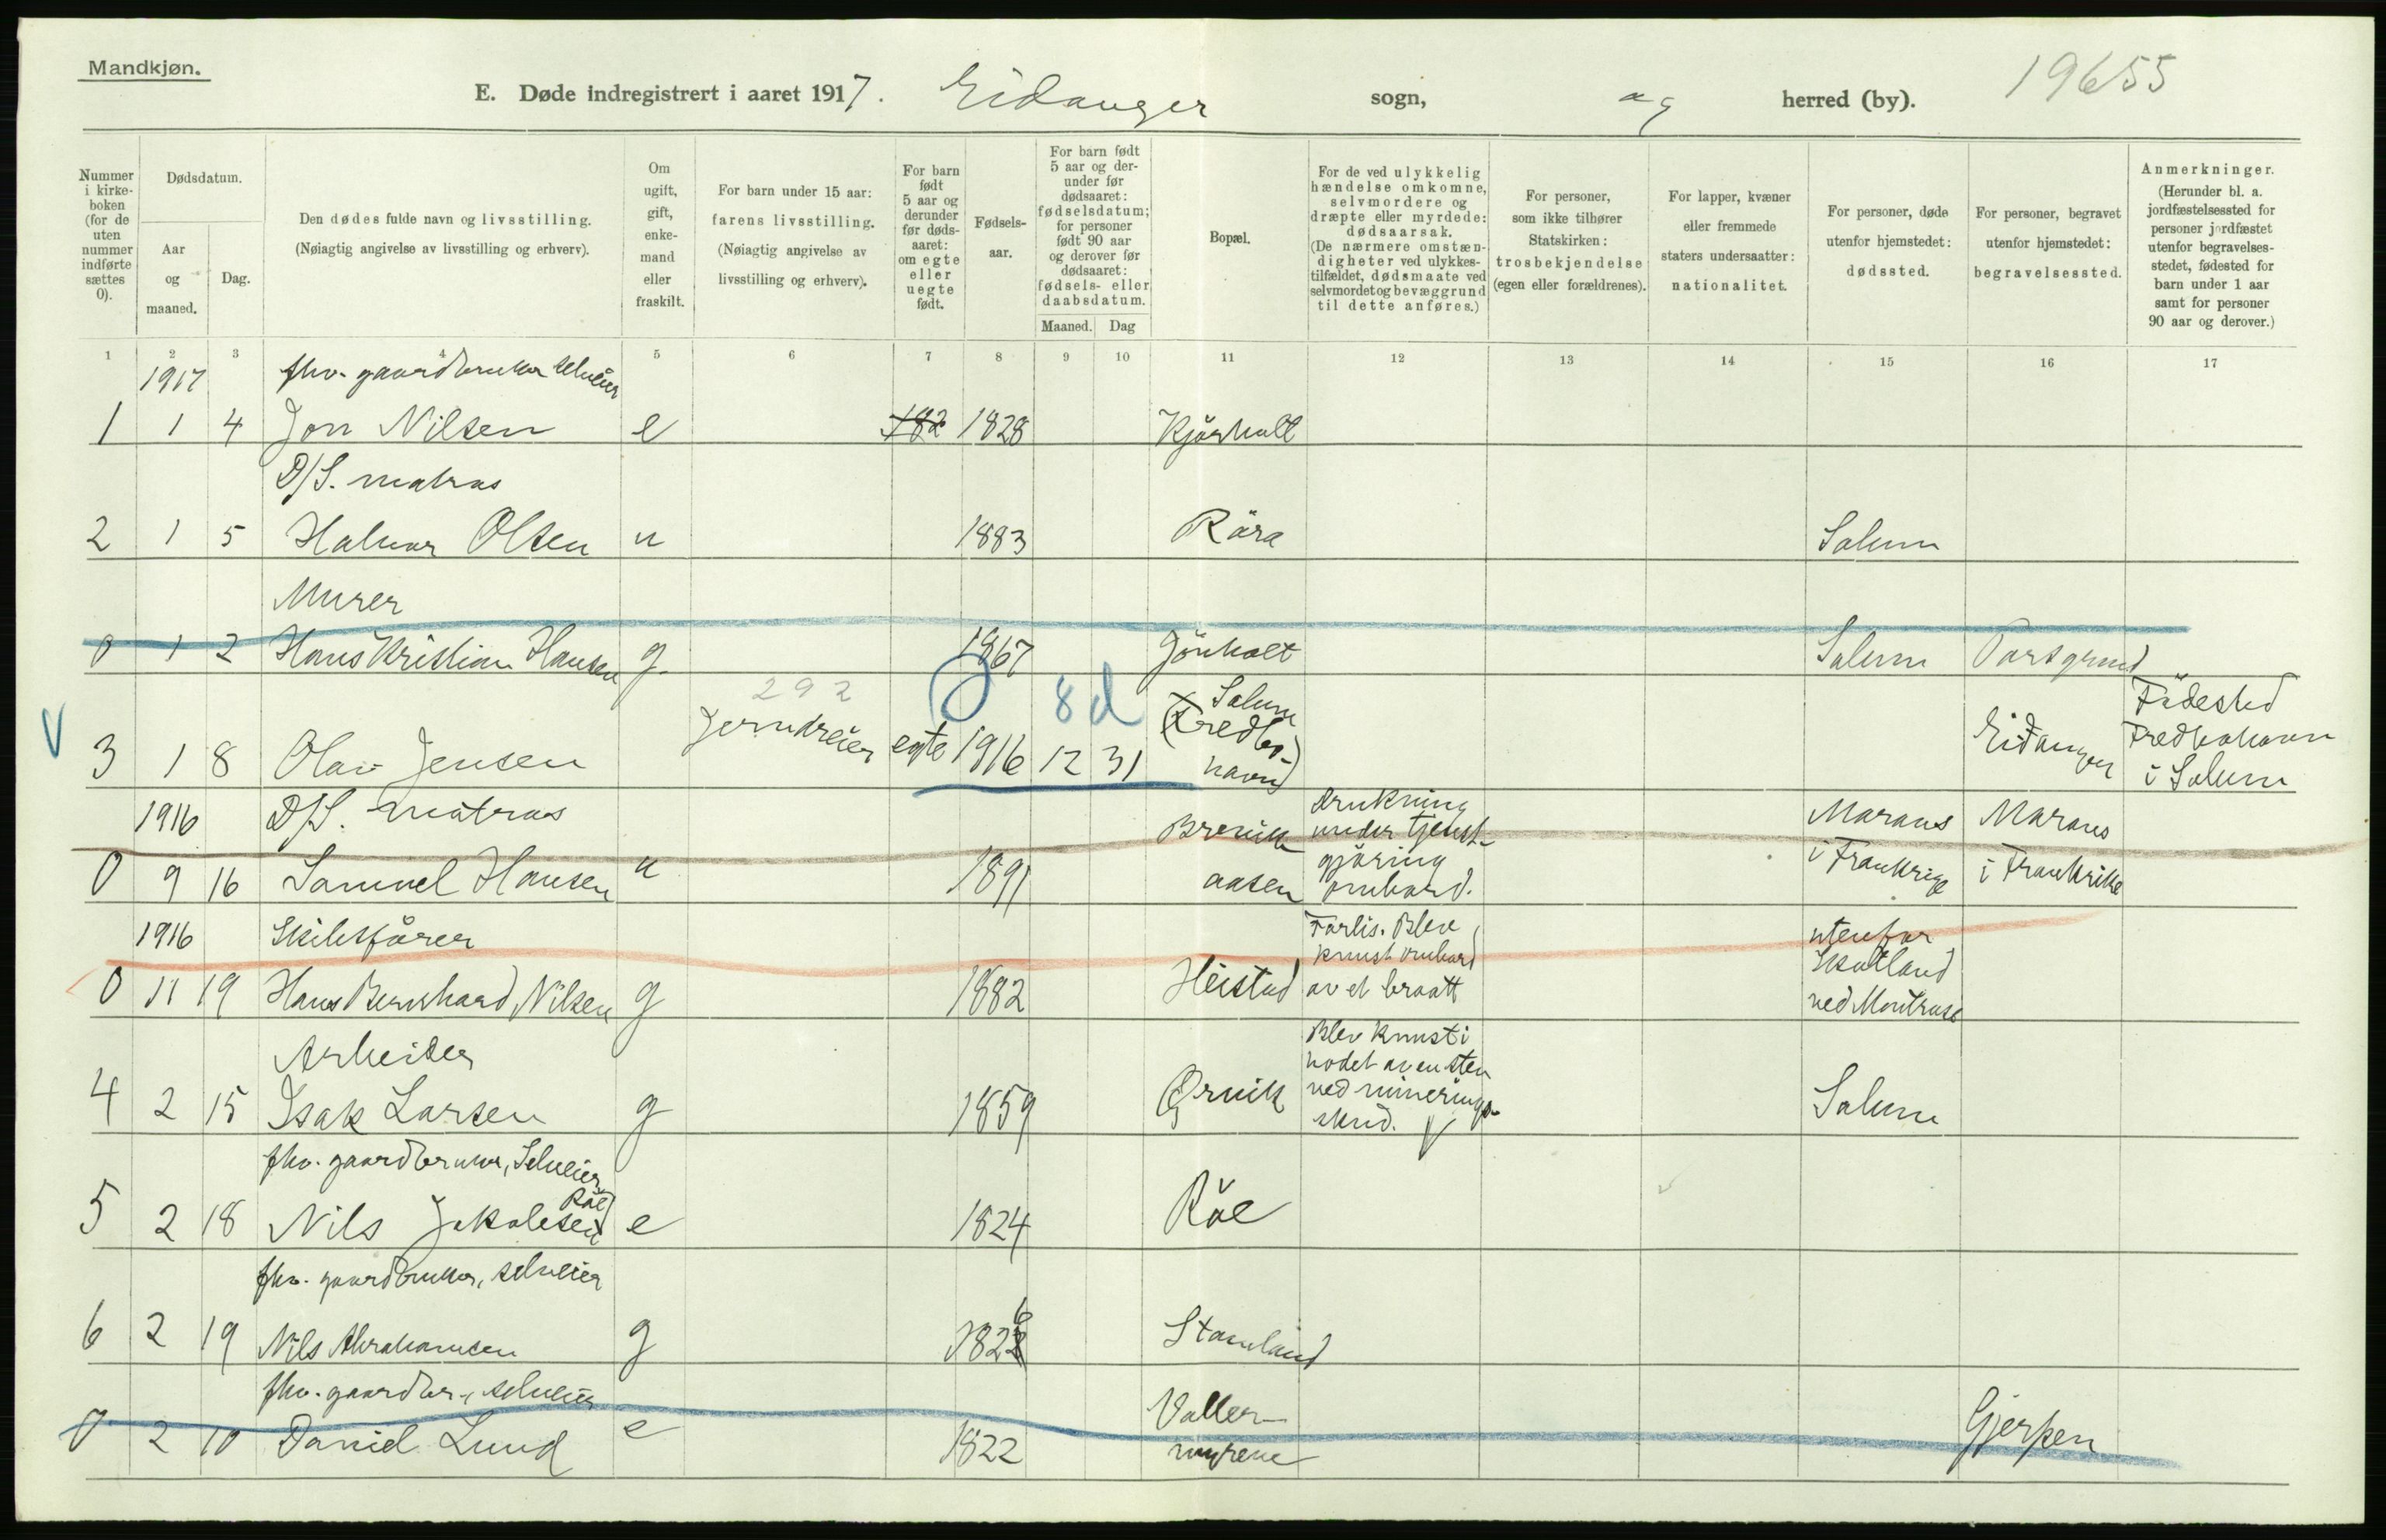 Mandkjøn.
E. Døde indregistrert i aaret 1917. Eidanger sogn, og herred (by). 19655
Nummer i kirkeboken (for de uten nummer indførte sættes 0).
Dødsdatum.
Aar og maaned.
Dag.
Den dødes fulde navn og livsstilling.
(Nøiagtig angivelse av livsstilling og erhverv).
Om ugift, gift, enkemand eller fraskilt.
For barn under 15 aar: farens livsstilling.
(Nøiagtig angivelse av livsstilling og erhverv).
For barn født 5 aar og derunder før dødsaaret: om egte eller uegte født.
Fødselsaar.
For barn født 5 aar og derunder før dødsaaret: fødselsdatum; for personer født 90 aar og derover før dødsaaret: fødsels- eller daabsdatum.
Maaned. Dag
Bopæl.
For de ved ulykkelig hændelse omkomne, selvmordere og dræpte eller myrdede: dødsaarsak.
(De nærmere omstændigheter ved ulykkestilfældet, dødsmaate ved selvmordet og bevæggrund til dette anføres.)
For personer, som ikke tilhører Statskirken: trosbekjendelse (egen eller forældrenes).
For lapper, kvæner eller fremmede staters undersaatter: nationalitet.
For personer, døde utenfor hjemstedet: dødssted.
For personer, begravet utenfor hjemstedet: begravelsessted.
Anmerkninger.
(Herunder bl. a. jordfæstelsessted for personer jordfæstet utenfor begravelsesstedet, fødested for barn under 1 aar samt for personer 90 aar og derover.)
1 2 3 4 5 6 7 8 9 10 11 12 13 14 15 16 17
1917 fhv. gaardbruker selveier
1 1 4 Jon Nilsen e 182 1828 Kjørholt
D/S. matros
2 1 5 Halvor Olsen u 1883 Røra Solum
Murer
0 1 2 Hans Kristian Hansen g. 1867 Gønholt Solum Porsgrund
292 8 d x Solum Fødested
V 3 1 8 Olav Jensen Jerndreier egte 1916 12 31 (Fredbo- Eidanger Fredbohavn
havn) i Solum
1916 D/S. matros Brevik drukning under tjenst- Marans Marans
0 9 16 Samuel Hansen u 1891 aasen gjøring ombord. i Frankrige i Frankrike
1916 Skibsfører Forlis. Blev knust ombord utenfor Skotland
0 11 19 Hans Bernhard Nilsen g 1882 Heistad av et braatt ved Montrose
Arbeider Blev knust i hodet av en sten
4 2 15 Isak Larsen g 1859 Ørvik ved minerings- skud. V Solum
fhv. gaardbruker, Selveier
5 2 18 Nils Jakobsen Røe e 1824 Røe
fhv. gaardbruker, selveier
6 2 19 Nils Abrahamsen g 1826 Stamland
fhv. gaardbr., selveier Valler-
0 2 10 Daniel Lund e 1822 myrene Gjerpen